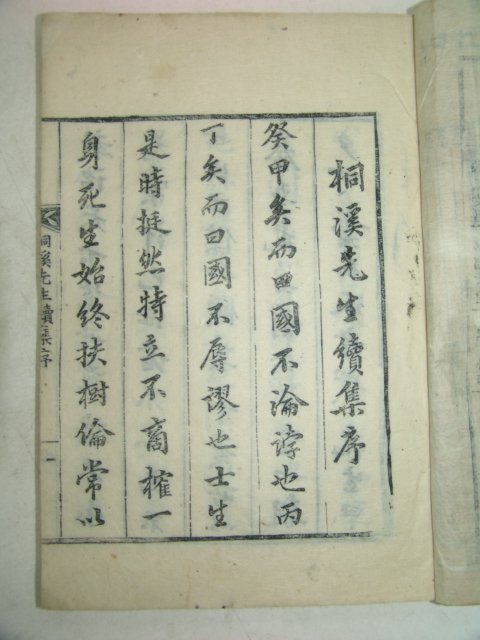 桐溪先生續集序
癸甲矣而曰國不淪誖也丙
丁矣而曰國不辱謬也士生
是時挺然特立不啻㩁一
身死生始終扶樹倫常以
桐溪先生續集序 一